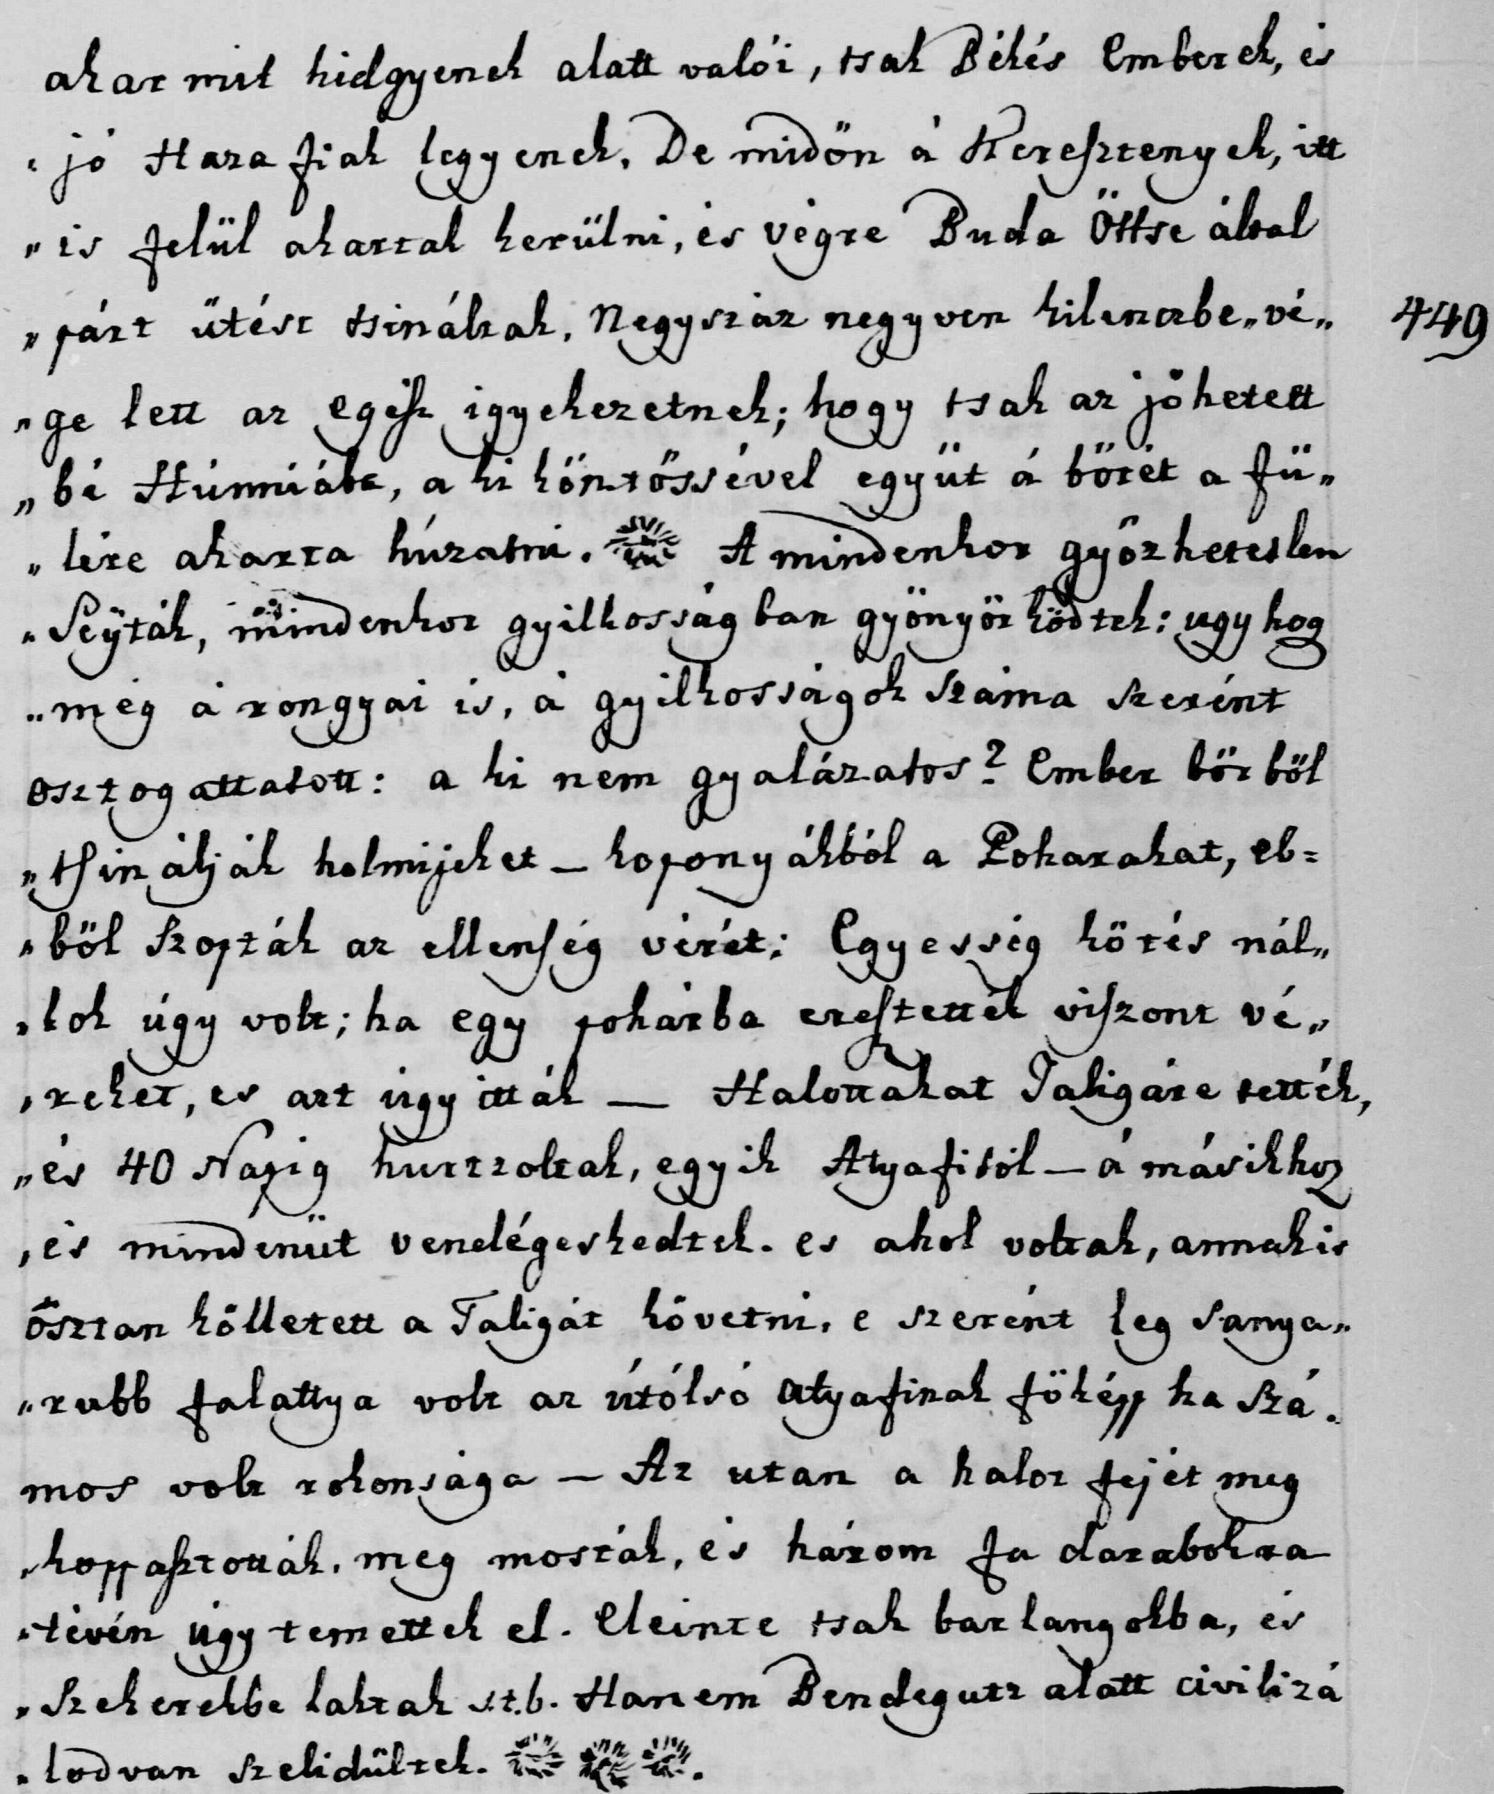 akar mit hidgyenek alatt valói, tsak Békés Emberek, és
„jó Haza fiak legyenek. De midőn á Kereſztenyek, itt
„is felül akartak kerülni, és végre Buda Öttse által
„párt ütést tsináltak, Negyszáz negyven kilenczbe„vé„ 449
„ge lett az egéſz igyekezetnek; hogy tsak az jöhetett
„bé Húnniába, a ki köntössével együt á bőrét a fü„
„lére akarta húzatni. A mindenkor győzhetetlen
„Scÿták, mindenkor gyilkosság ban gyönyörködtek: ugy hog
„még á rongyai is, á gyilkosságok száma szerént
osztogattatott: a ki nem gyalázatos? Ember bőrből
„tſinálják holmijeket — koponyákból a Poharakat, eb=
„ből szopták az ellenſég vérét: Egyesség kötés nál„
„lok úgy volt; ha egy pohárba ereſztettek viſzont vé„
„reket, es azt úgy itták — Halottakat Taligára tették,
„és 40 Napig hurtzoltak, egyik Atyafitól — á másikhoz
„és mindenüt vendégeskedtek. es ahol voltak, annak is
ősztan kölletett a Taligát követni. e szerént leg sanya„
„rubb falattya volt az útólsó atyafinak főképp ha szá„
mos volt rokonsága — Az utan a halot fejét meg
„koppaſztották. meg mosták, és három fa darabokra
„tévén úgy temettek el. Eleinte tsak barlangokba, és
„szekerekbe laktak s.t.b. Hanem Bendegutz alatt civilizá
„lodvan szelidültek.